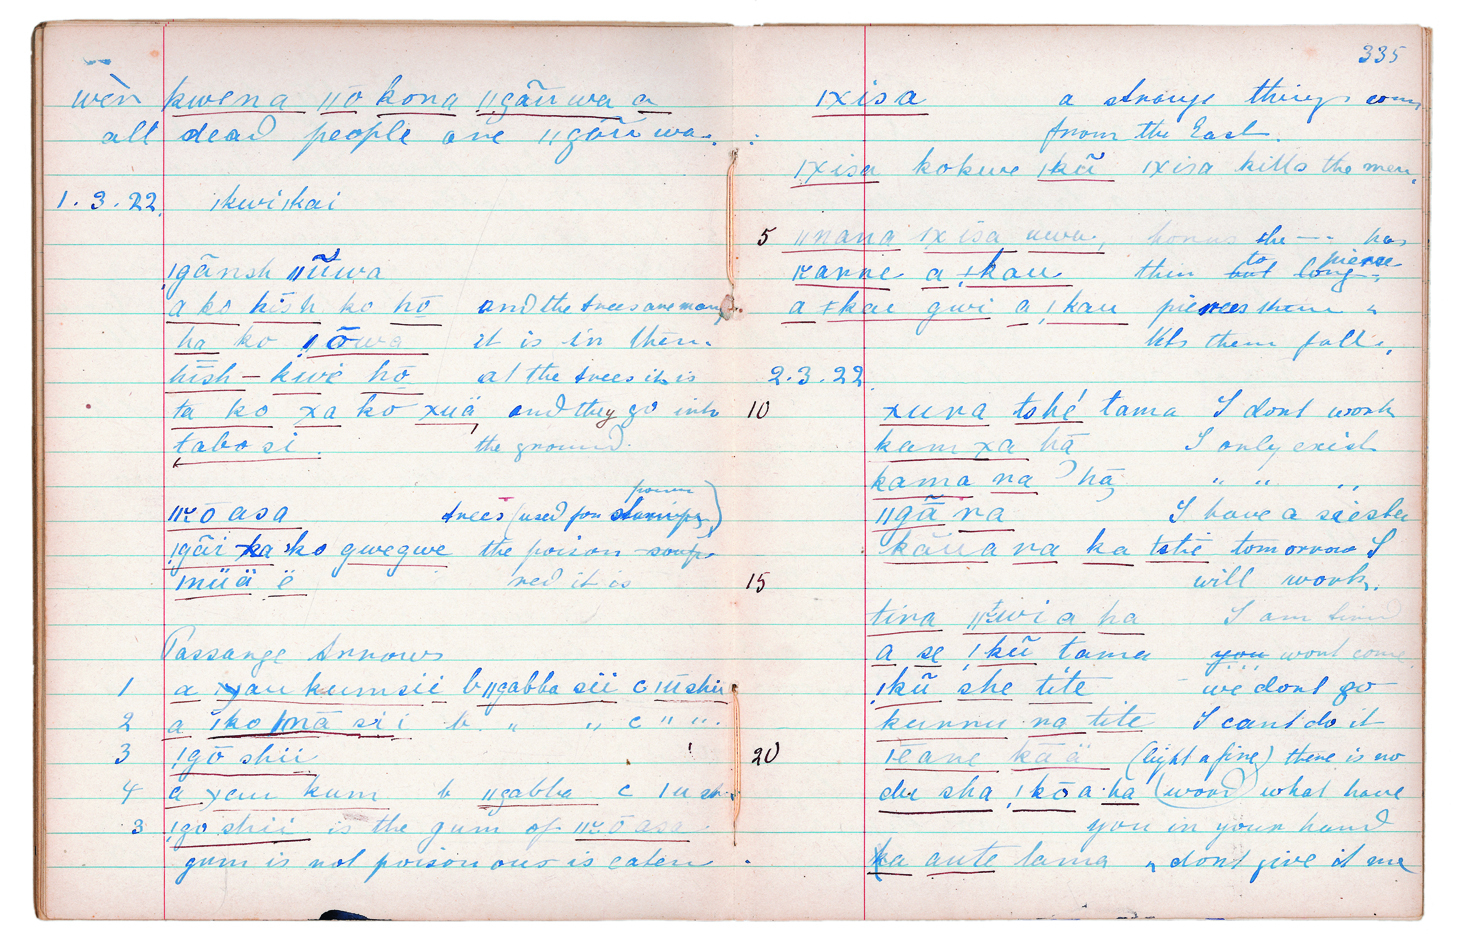 wèn kwena ǁō kona ǁgãũwa a
all dead people are ǁgãũwa.
1.3.22. ǀkwiǀkai
ǃgãnsh ǁũwa
a ko hĩsh ko hō and the trees are many
ha ko ǃōwa it is in them
hĩsh – kwè hō at the trees it is
ta ko xa ko xuä and they go into
tabosi. the ground.
poison
ǁxō asa trees (used for stamps)
ǃgãi xa ko gwegwe the poison soup
ǀnüä ë red it is
Passarge Arrows
1 a xau kumsii b ǁgabba sii c ǀūshii
2 a ǀko ǀnā sii b. " " c " ".
3 ǃgō shii
4 a xau kum b ǁgabba c ǀu sh
3 ǃgo shii is the gum of ǁxō asa
gum is not poisonous is eaten
335
ǀxisa a strange things come
from the East.
ǀxisa kokwe ǃkũ ǀxisa kills the men.
5 ǁnana ǀxisa uwa, horns the — has
ǀxanne a ǂkau thin but to long pierse
a ǂkau gwi a ǃkau pierces them &
lets them fall.
2.3.22.
10 xura tshé tama I dont work
kam xa hā I only exist
kama ra ? hā " " "
ǁgā ra I have a siesta
kāua ra ka tshē tomorrow I
15 will work.
tira ǁxwi a ha I am tired
a se ǃkũ tama you wont come
ǃkũ she tite we dont go
kunnu ra tite I cant do it
20 ǀēane kāä (light a fire) there is no
du sha ǃkō a ha (wood) what have
you in your hand
ka aute tama & dont give it me